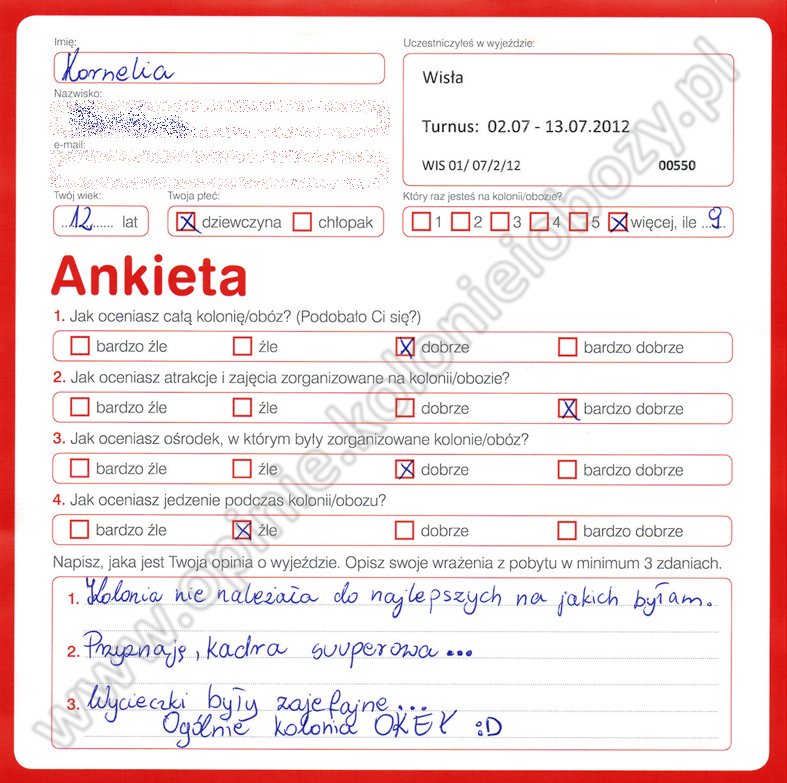 Imię:
Kornelia
Nazwisko:
e-mail:
Twój wiek:
12 lat
Twoja płeć:
dziewczyna chłopak
Uczestniczyłeś w wyjeździe:
Wisła
Turnus: 02.07 - 13.07.2012
WIS 01/ 07/2/12 00550
Który raz jesteś na kolonii/obozie?
1 2 3 4 5 więcej, ile 9
Ankieta
1. Jak oceniasz całą kolonię/obóz? (Podobało Ci się?)
bardzo źle źle dobrze bardzo dobrze
2. Jak oceniasz atrakcje i zajęcia zorganizowane na kolonii/obozie?
bardzo źle źle dobrze bardzo dobrze
3. Jak oceniasz ośrodek, w którym były zorganizowane kolonie/obóz?
bardzo źle źle dobrze bardzo dobrze
4. Jak oceniasz jedzenie podczas kolonii/obozu?
bardzo źle źle dobrze bardzo dobrze
Napisz, jaka jest Twoja opinia o wyjeździe. Opisz swoje wrażenia z pobytu w minimum 3 zdaniach.
1. Kolonia nie należała do najlepszych na jakich byłam.
2. Przyznaję, kadra suuperowa...
3. Wycieczki były zajefajne...
Ogólnie kolonia OKEY :D
www.opinie.kolonieiobozy.pl